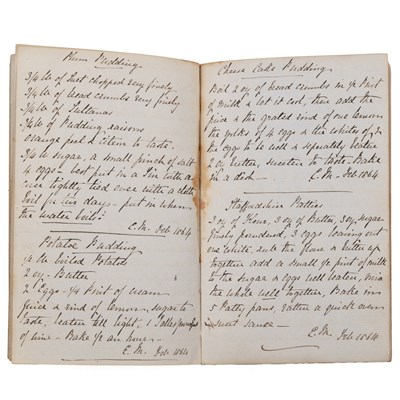 Plum Pudding
3/4 lb of Suet chopped very finely
3/4 lb of bread crumbs very finely
3/4 lb of Sultanas
3/4 lb of Pudding raisons
orange peel & Citern to taste.
3/4 lb sugar, a small pinch of salt
4 eggs - best put in a Tin with a
over tightly tied over with a cloth
boil for six days - put in when
the water boils!
E.M. Feb 1864
Potatoe Pudding
1/2 lb boiled Potatoe
2 oz. Butter
2 Eggs - 1/4 Pint of cream
juice & rind of lemon, sugar to
taste, beaten till light - 1
of wine - Bake 1/2 an hour -
E.M. Feb 1864
Cheese Cake Pudding
Boil 2 oz of bread crumbs in 1/2 Pint
of Milk & let it cool, then add the
juice & the grated rind of one lemon
the yolks of 4 eggs & the whites of 2.
the eggs to be well & separately beaten
2 oz butter, sweeten to taste Bake
in a dish - E.M. Feb 1864
Staffordshire Patties
3 oz of flour, 3 oz of Butter, 3 oz sugar
finely pounded, 3 eggs leaving out
one white, rub the flour & butter up
together add a small 1/2 pint of milk
to the sugar & eggs well beaten, mix
the whole well together, Bake in
5 Patty pans, rather a quick oven
sweet sauce -
E.M. Feb 1864